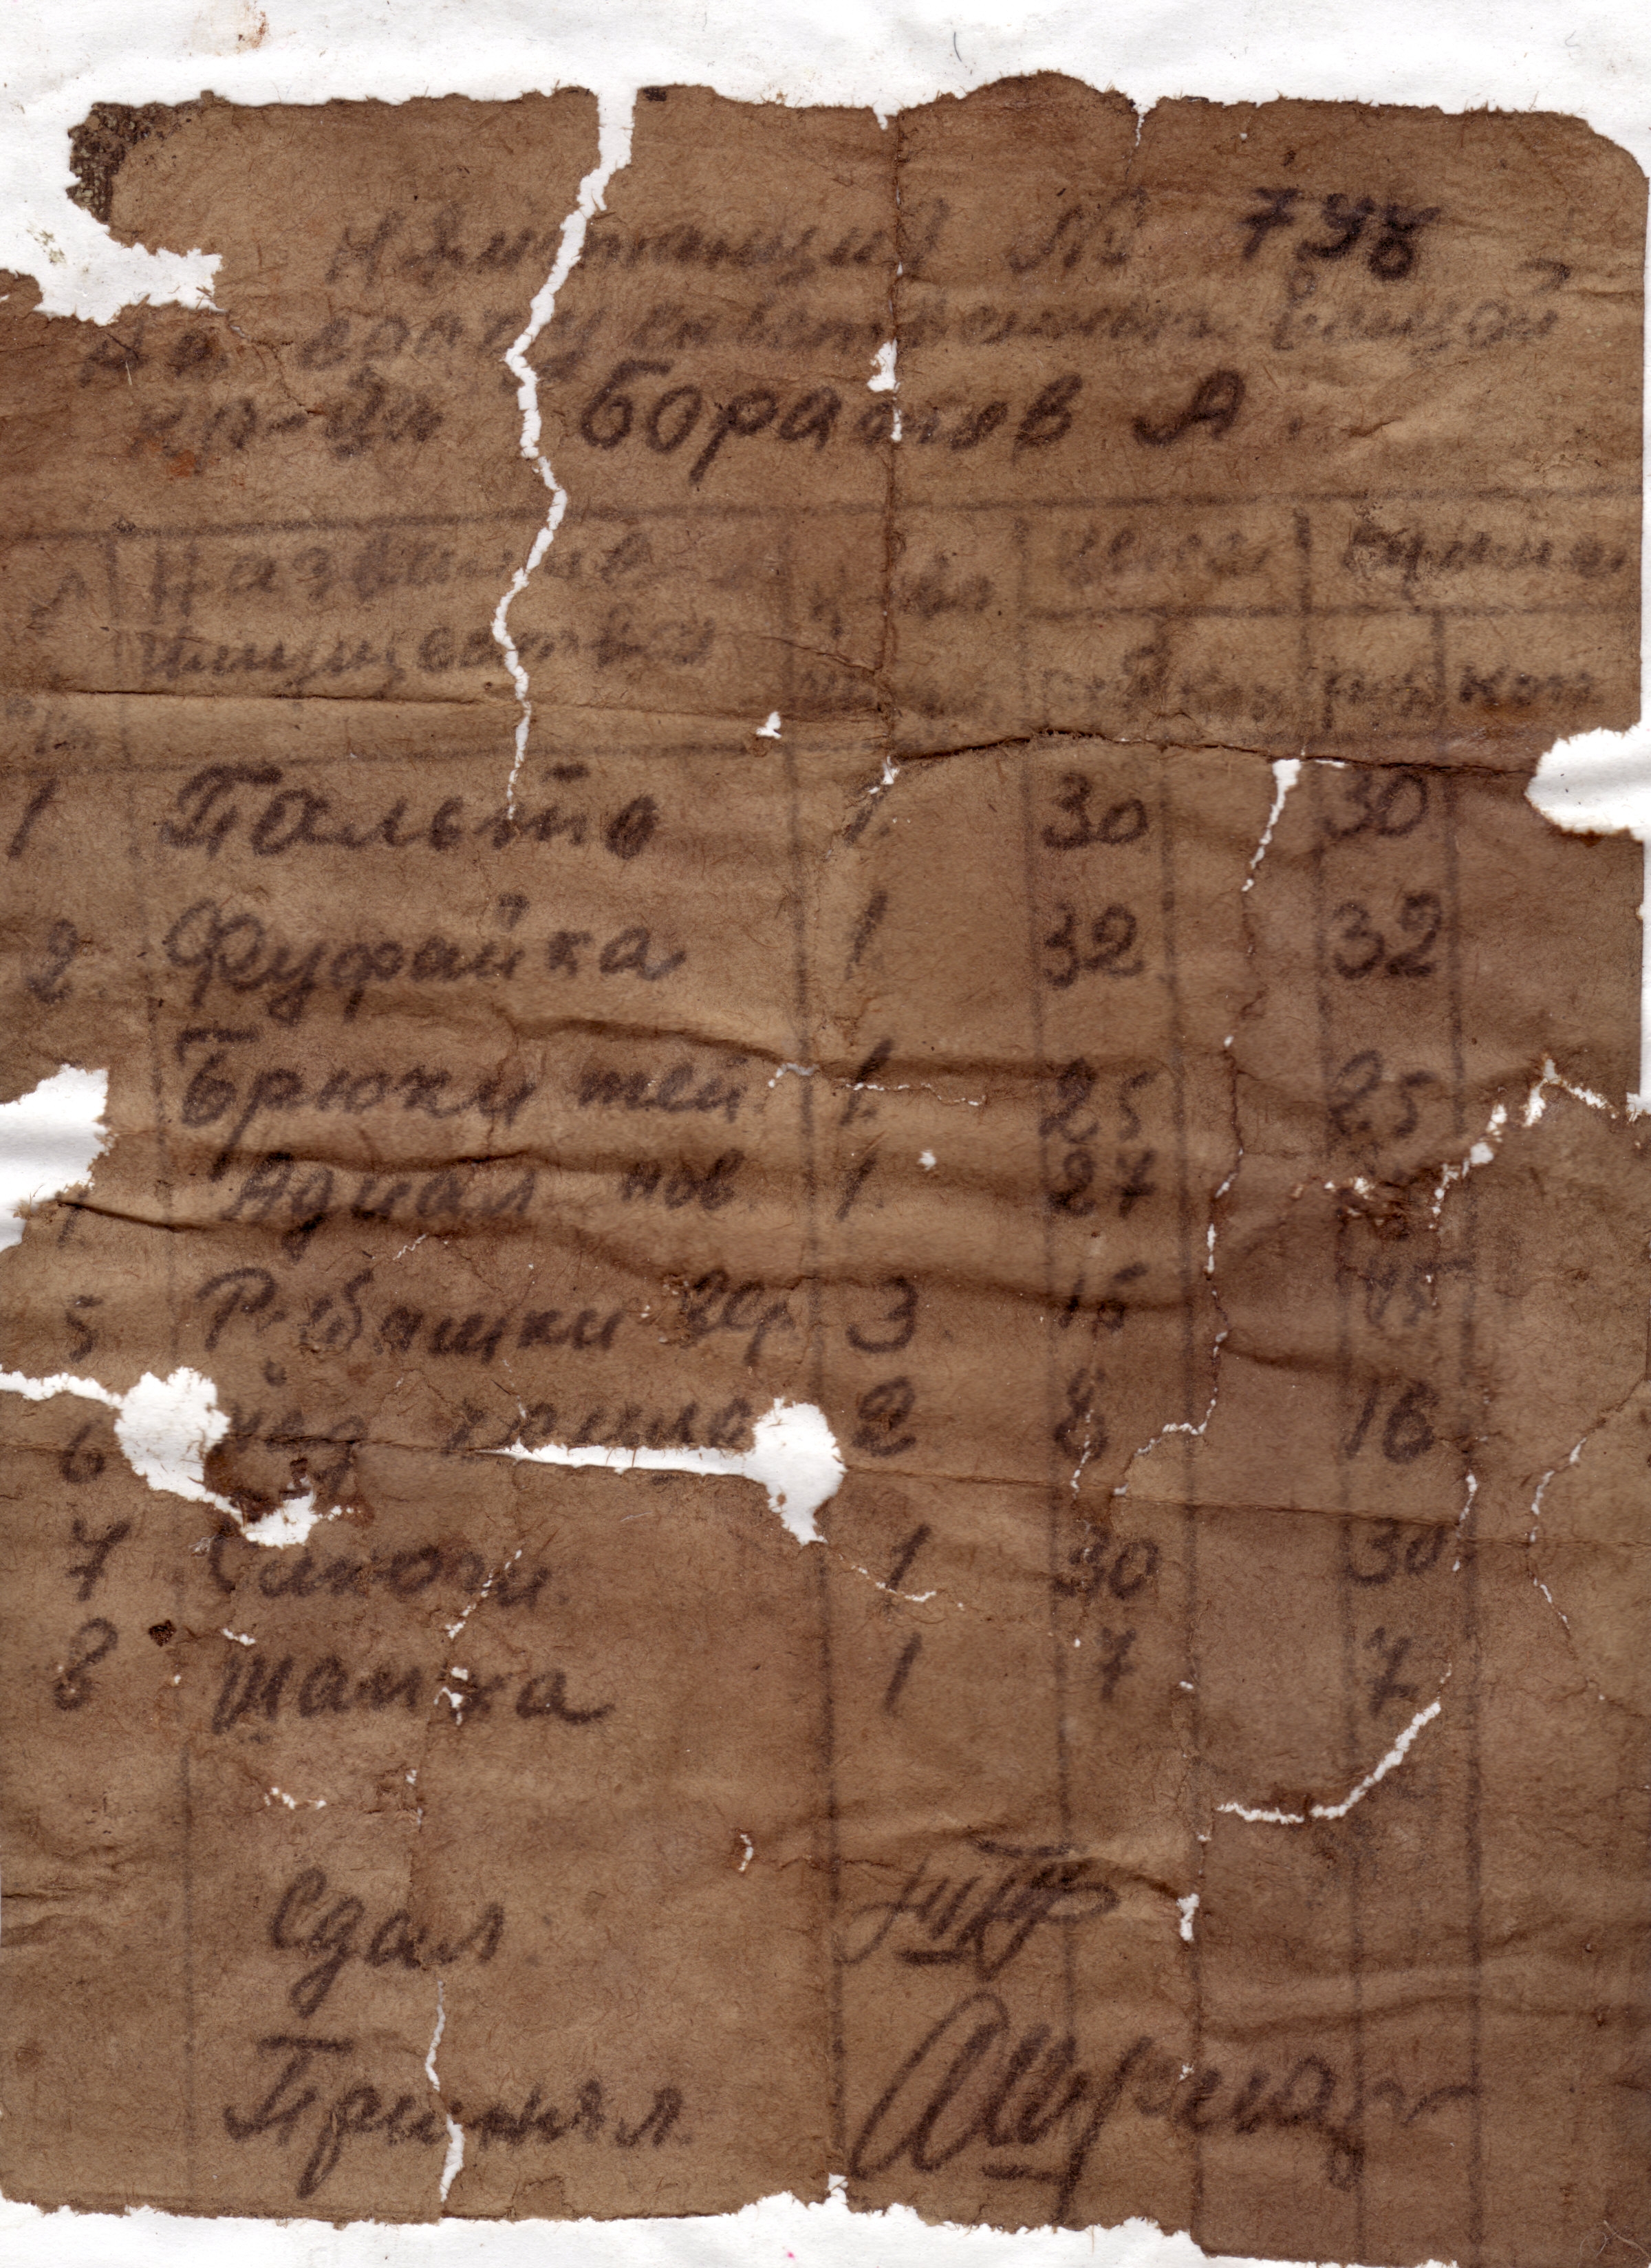 Квитанция № 798
на собственных вещей
кр-ца Боратов А.
Название к-во цена сумма
имущества руб коп руб коп
1 Пальто 1. 30 30
2 Фуфайка 1 32 32
Брюки теп 1. 25 25
Адиал нов. 1. 27
5 Рубашки 3 15 45
6 2 8 16
7 Сапоги 1 30 30
8 Шапка 1 7 7
Сдал
Принял